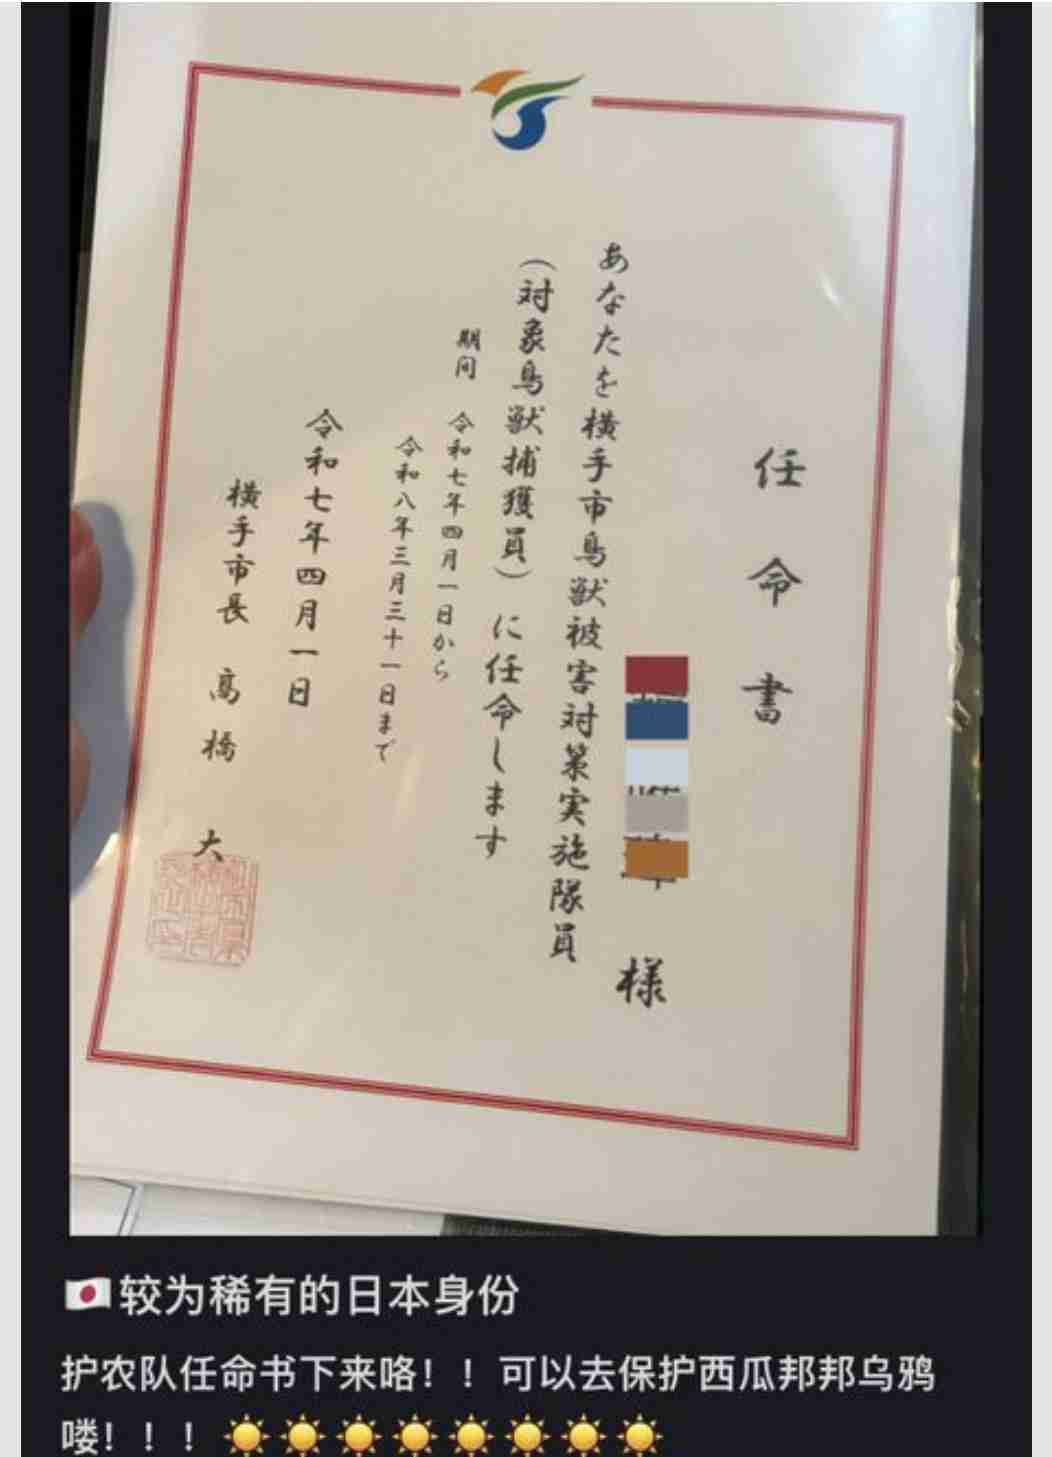 任命書
様
あなたを横手市鳥獣被害対策実施隊員
（対象鳥獣捕獲員）に任命します
期间 令和七年四月一日から
令和八年三月三十一日まで
令和七年四月一日
横手市長 高橋 大
🇯🇵较为稀有的日本身份
护农队任命书下来咯！！可以去保护西瓜邦邦乌鸦
喽！！！☀️☀️☀️☀️☀️☀️☀️☀️